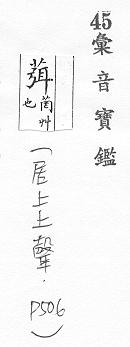 45彙音寶鑑
葞
艸也
(居上上聲.P506)